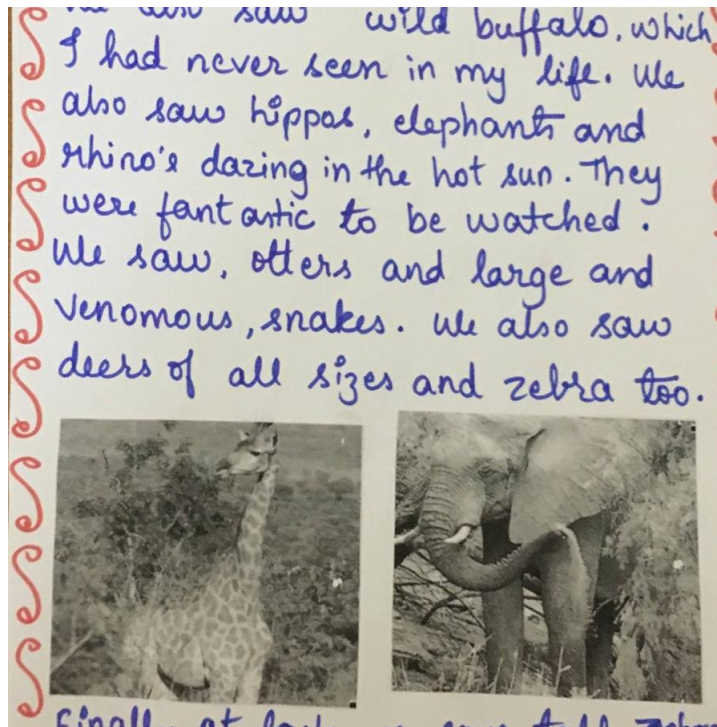 We also saw wild buffalo, which
I had never seen in my life. We
also saw hippos, elephants and
rhino's dazing in the hot sun. They
were fantastic to be watched.
We saw, otters and large and
venomous, snakes. We also saw
deers of all sizes and zebra too.
Finally at last